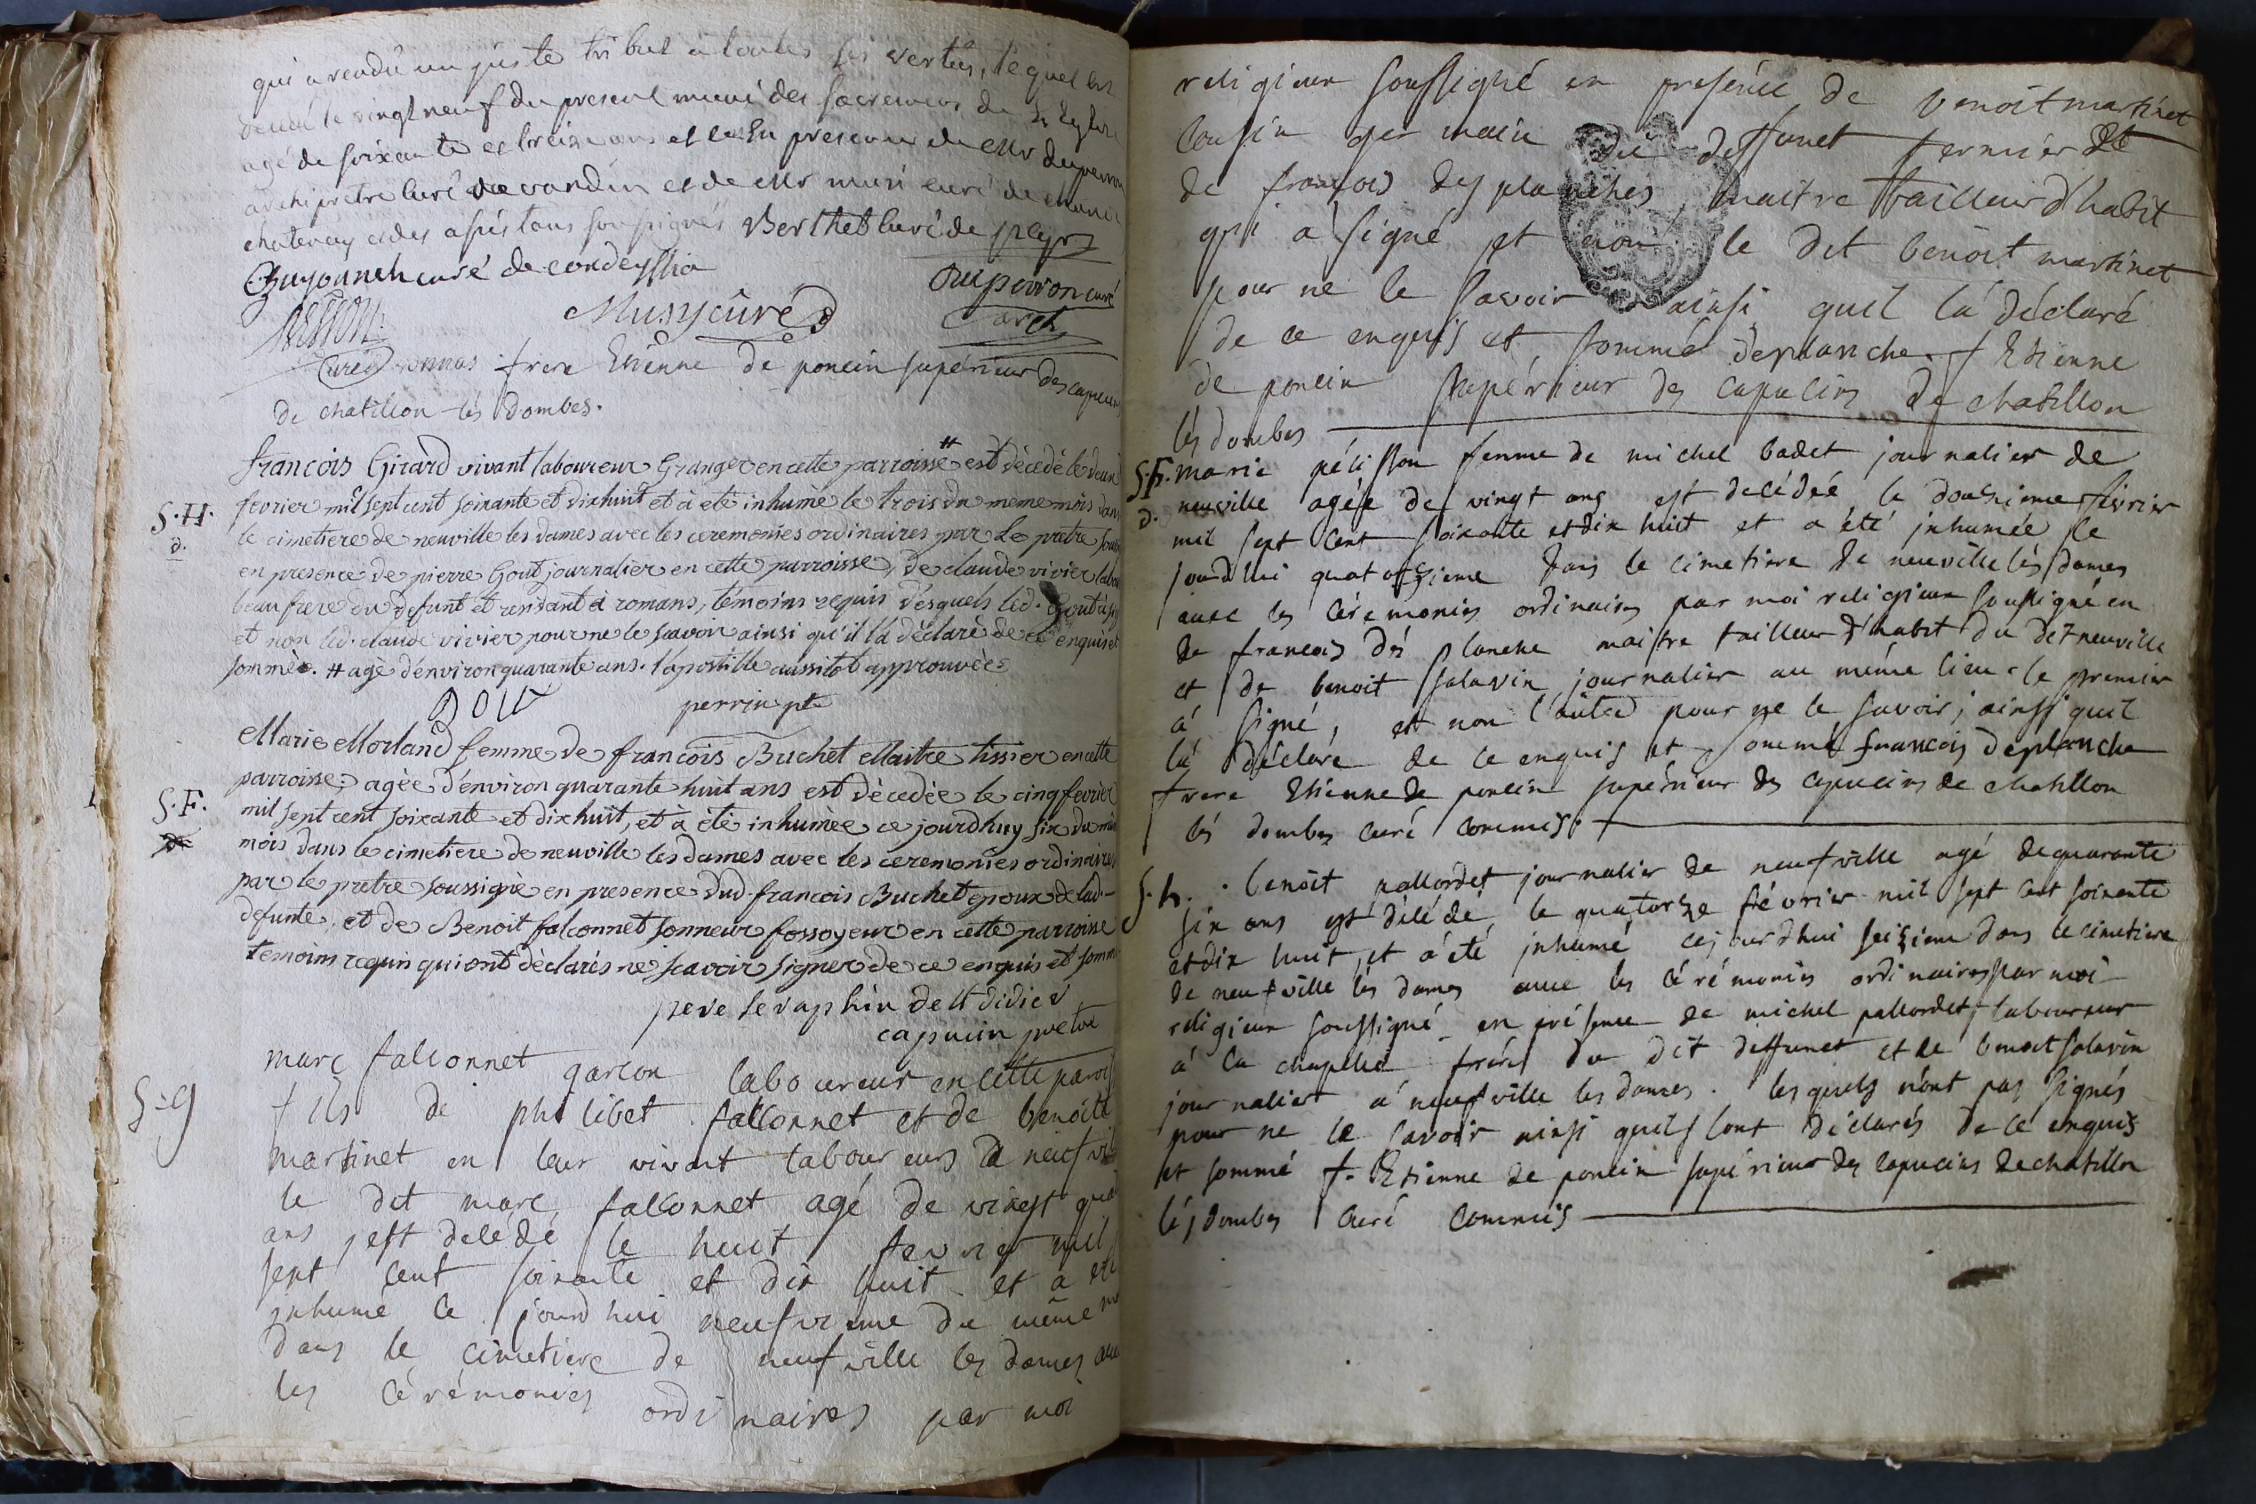 qui a rendu un juste tribut a toutes ses vertus, lequel est
decedé le vingt neuf du present muni des sacremens de
agé de soixante et treize ans et en presence de Mr Duperron
archiprêtre curé de vandin et de Mr musi curé de
chatenay et des assistans soussignés Berthet curé de
Guyonnet curé de condeyssia
Duperron curé
Musy curé
arch
curé
frere Etienne de poncin supérieur des capucins
de chatillon lès dombes.
françois Girard vivant laboureur Granger en cette parroisse # est dècedè le deux
S.H.
fevrier mil sept cent soixante et dixhuit et à ètè inhumè le trois du meme mois dans
d.
le cimetiere de neuville les dames avec les ceremonies ordinaires par le pretre
en presence de pierre Gout journalier en cette parroisse, de claude vivier
beau frere du defunt et residant à romans, tèmoins requis desquels led. Gout
et non led. claude vivier pour ne le scavoir ainsi qu'il la dèclarè de ce enquis et
sommè. # agè d'environ quarante ans. l'apostille aussitot approuvèe
Gout
perrin ptre
Marie Morland femme de françois Buchet Maitre tissier en cette
parroisse; agèe d'environ quarante huit ans est dècedèe le cinq fevrier
S.F.
mil sept cent soixante et dixhuit, et à ètè inhumèe ce jourdhuy six du
mois dans le cimetiere de neuville les dames avec les ceremonies ordinaires
par le pretre soussignè en presence dud. françois Buchet epoux de lad.
defunte, et de Benoit falconnet sonneur fossoyeur en cette parroisse
temoins requis qui ont dèclarès ne scavoir signer de ce enquis et
pere seraphin de st didier
capucin pretre
marc falconnet garcon laboureur en cette
S:g
fils de philibet falconnet et de benoite
martinet en leur vivant laboureurs a
le dit marc falconnet agé de vingt
ans est décédé le huit fevrier mil
sept cent soixante et dix huit et a été
inhumé ce jourd hui neufvieme du même
dans le cimetiere de neufville les dames
les cérémonies ordinaires par moi
religieux soussigné en présence de benoit martinet
cousin germain du deffunet fermier et
de françois desplanches maitre tailleur d'habit
qui a signé et non le dit benoit martinet
pour ne le savoir ainsi quil la déclaré
de ce enquis et sommé deplanche. f Etienne
de poncin supérieur des capucins de chatillon
lès dombes
S.F. marie pélisson femme de michel badet journalier de
d. neuville agée de vingt ans est decédée le dousieme février
mil sept cent soixante et dix huit et a été inhumée ce
jourd'hui quatorsieme dans le cimetiere de neuville lès dames
avec les cérémonies ordinaires par moi religieux soussigné en
de francois des planche maistre tailleur d'habit du dit neuville
et de benoit salavin journalier au même lieu. le premier
à signé, et non l'autre pour ne le savoir, ainssi quil
la déclare de ce enquis et sommé francois deplanche
frere Etienne de poncin supérieur des capucins de chatillon
lès dombes curé commis.
S.h. benoit pallordet journalier de neufville agé de quarante
six ans est décédé le quatorze février mil sept cent soixante
et dix huit, et a été inhumé cejourd'hui seizieme dans le cimetiere
de neufville lès dames avec les cérémonies ordinaires par moi
religieux soussigné en présence de michel pallordet laboureur
à la chapelle frère du dit deffunet et de benoit salavin
journalier a neufville les dames. les quels n'ont pas signés
pour ne le savoir ainsi quils lont déclarés de ce enquis
et sommé f. Etienne de poncin supérieur des capucins de chatillon
lès dombes curé commis